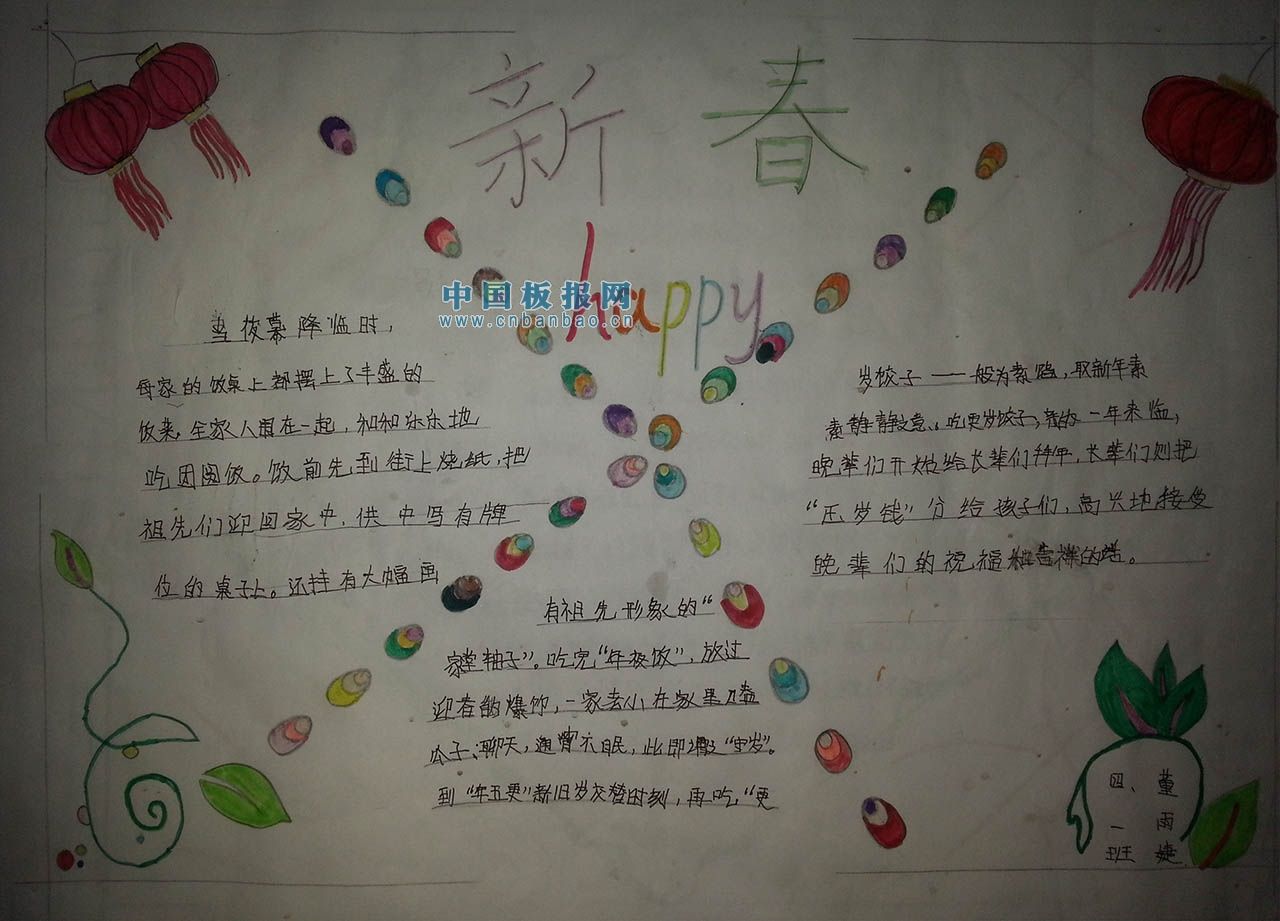 新春
happy
中国板报网
www.cnbanbao.cn
当夜幕降临时，
每家的饭桌上都摆上了丰盛的
饭菜，全家人围在一起，和和乐乐地
吃团圆饭。饭前先到街上烧纸，把
祖先们迎回家中，供中写有牌
位的桌子上。还挂有大幅画
有祖先形象的“
家堂轴子”。吃完“年夜饭”，放过
迎春的爆竹，一家老小在家里
瓜子、聊天，通宵不眠，此即“守岁”。
到“年五更”新旧岁交替时刻，再吃“更
岁饺子——一般为素馅，取新年素
素静静之意。吃更岁饺子，新的一年来临，
晚辈们开始给长辈们拜年，长辈们则把
“压岁钱”分给孩子们，高兴地接受
晚辈们的祝福和吉祥的话。
四、一班
董雨婕